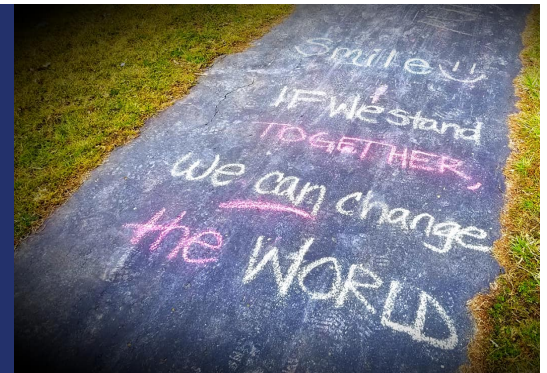 Smile :)
IF We stand
TOGETHER,
we can change
the WORLD